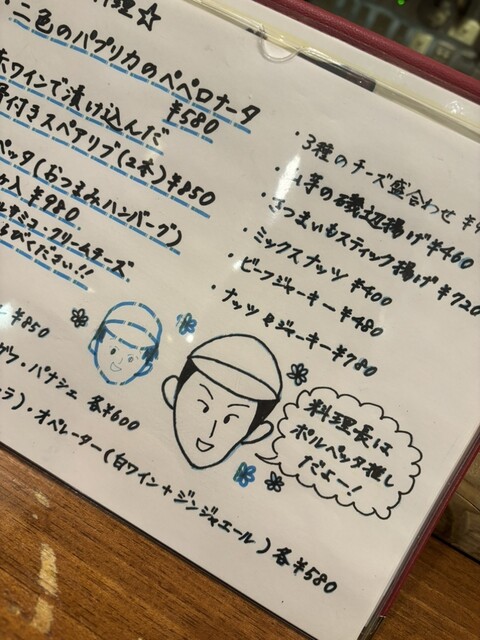 料理☆
・二色のパプリカのペペロナータ
¥580
赤ワインで漬け込んだ
骨付きスペアリブ(2本)¥850
ペッタ(おつまみハンバーグ)
入 ¥980
・クリームチーズ
ください!!
¥850
・パナシェ 各¥600
ラ)・オペレーター(白ワイン+ジンジャエール)各¥580
・3種のチーズ盛合わせ ¥
・山芋の磯辺揚げ ¥460
・さつまいもスティック揚げ ¥720
・ミックスナッツ ¥400
・ビーフジャーキー ¥480
・ナッツ&ジャーキー ¥780
料理長は
ポルペッタ推し
だよー!